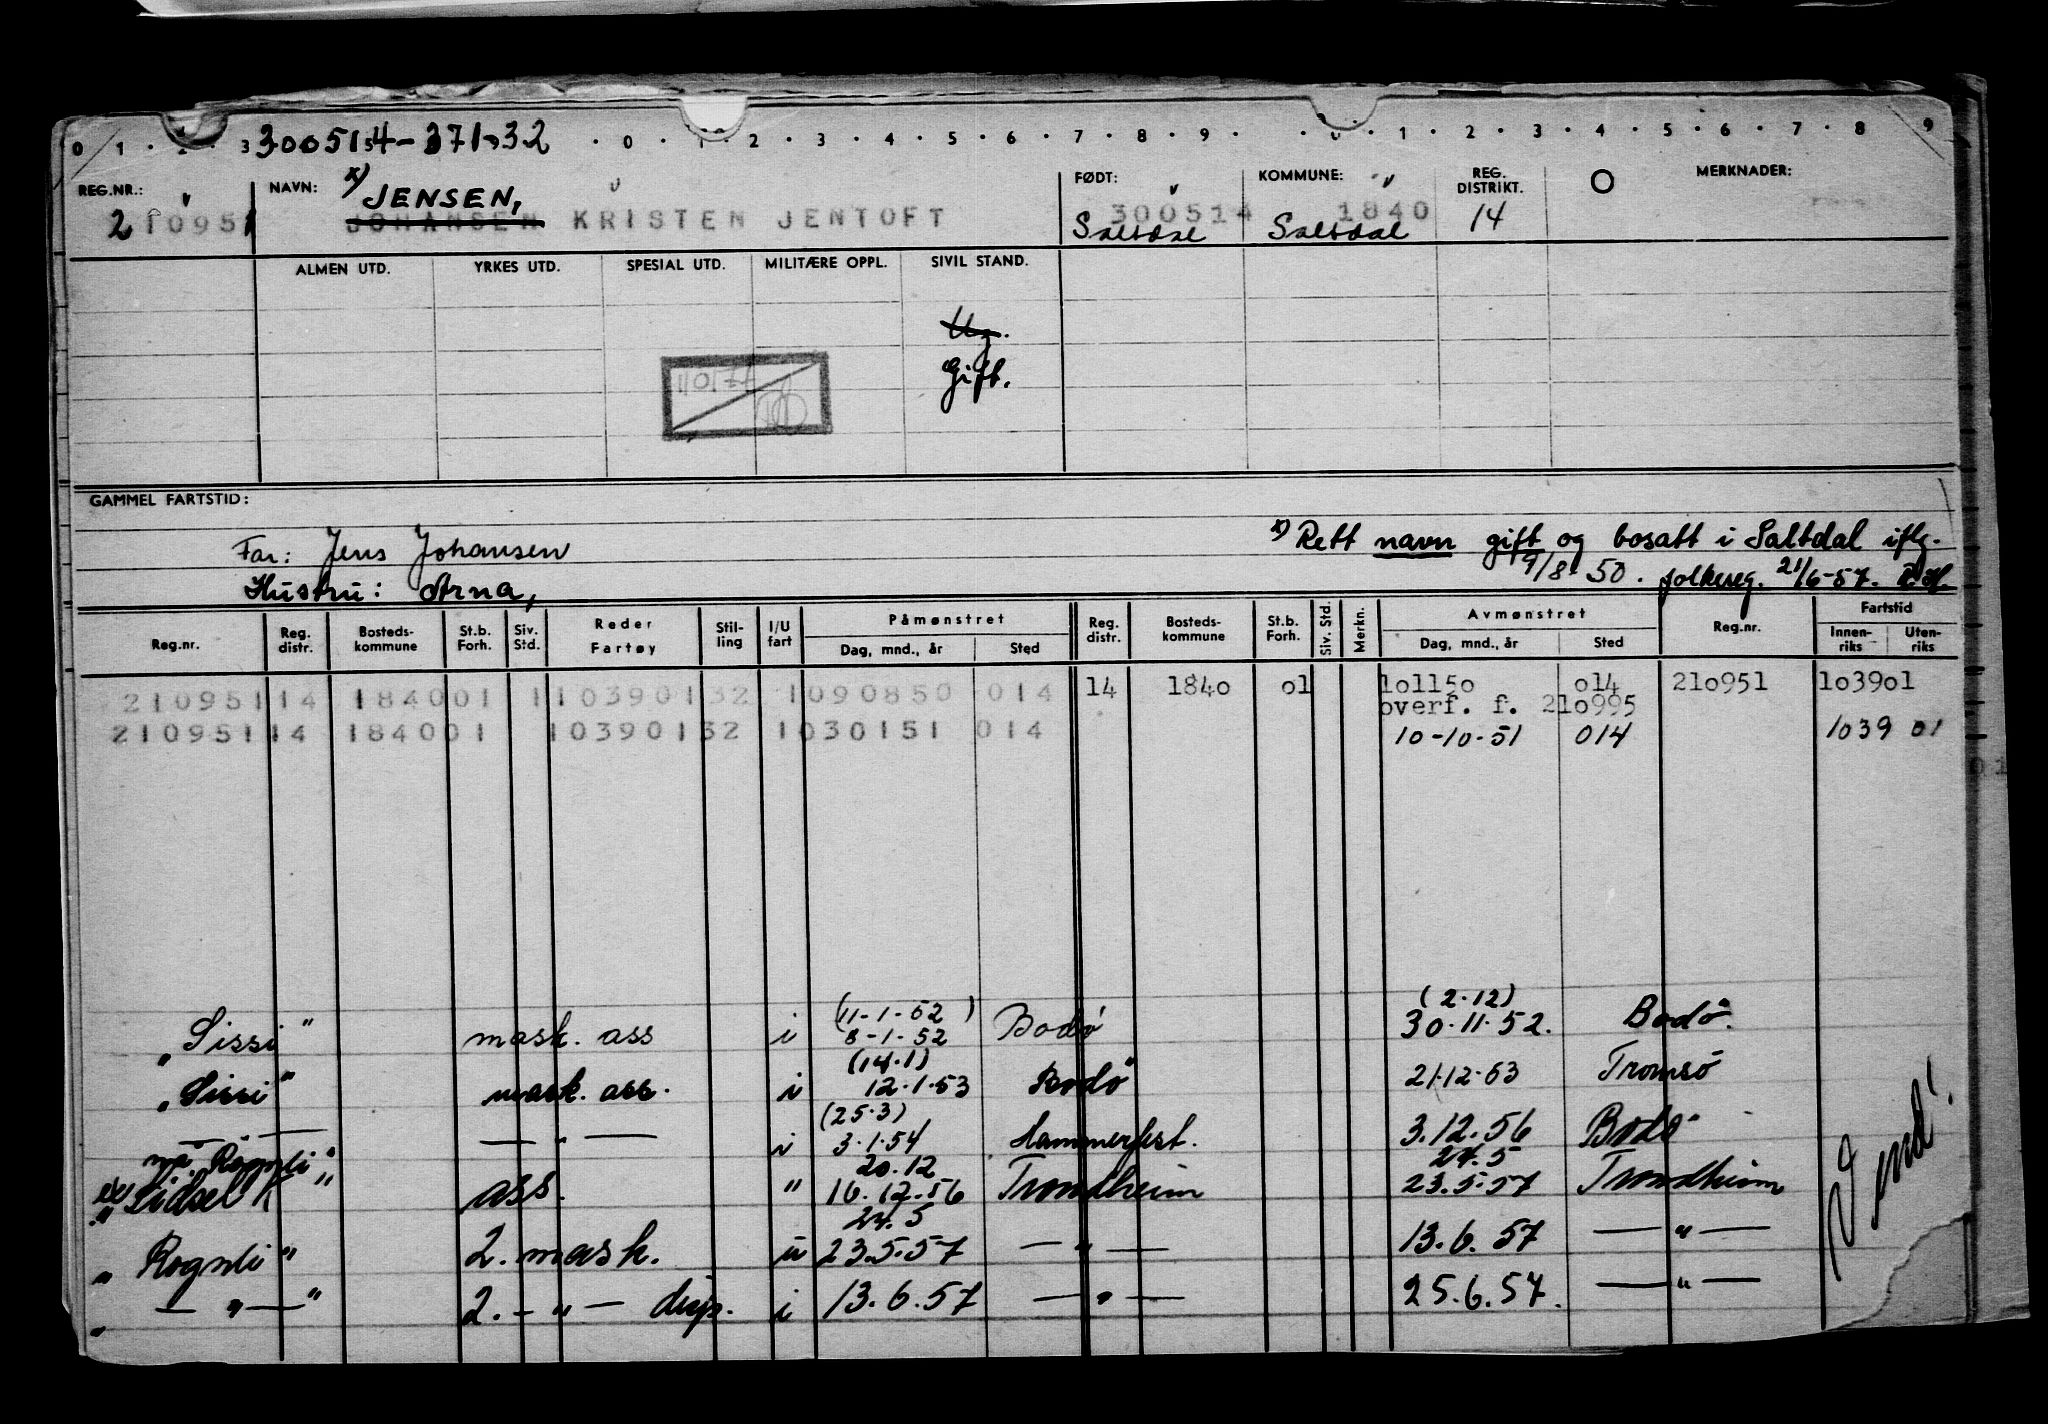 300514-37132
0 1 2 3 0 1 2 3 4 5 6 7 8 9 0 1 2 3 4 5 6 7 8 9
REG.NR.: NAVN: x) JENSEN, FØDT: KOMMUNE: REG. DISTRIKT. O MERKNADER:
210951 JOHANSEN KRISTEN JENTOFT 300514 1840 14
Saltdal Saltdal
ALMEN UTD. YRKES UTD. SPESIAL UTD. MILITÆRE OPPL. SIVIL STAND.
Ug.
Gift.
GAMMEL FARTSTID:
Far: Jens Johansen x) Rett navn gift og bosatt i Saltdal iflg.
9/8-50. folkereg. 21/6-57.
Hustru: Arna,
Reg.nr. Reg. distr. Bosteds-kommune St.b. Forh. Siv. Std. Reder Fartøy Stil-ling I/U fart Påmønstret Dag, mnd., år Sted Reg. distr. Bosteds-kommune St.b. Forh. Siv. Std. Merkn. Avmønstret Dag, mnd., år Sted Reg.nr. Fartstid Innen-riks Uten-riks
210951 14 1840 01 1 10390132 1090850 014 14 1840 01 101150 014 210951 103901
overf. f. 210995
210951 14 1840 01 10390132 1030151 014 10-10-51 014 1039 01
(11-1-52) (2.12)
"Sissi" mask. ass i 8-1-52 Bodø 30.11.52. Bodø.
(14.1)
"Sissi" mask. ass. i 12.1.53 Bodø 21.12.53 Tromsø
(25.3)
— " — — " — i 3.1.54 Hammerfest. 3.12.56 Bodø
nå. Rognli" 20.12 24.5
ex "Sidsel K" ass. " 16.12.56 Trondheim 23.5.57 Trondheim
24.5
"Rognli" 2. mask. u 23.5.57 — " — 13.6.57 — " —
" — " — " 2. — " — disp. i 13.6.57 — " — 25.6.57. — " —
Vend!